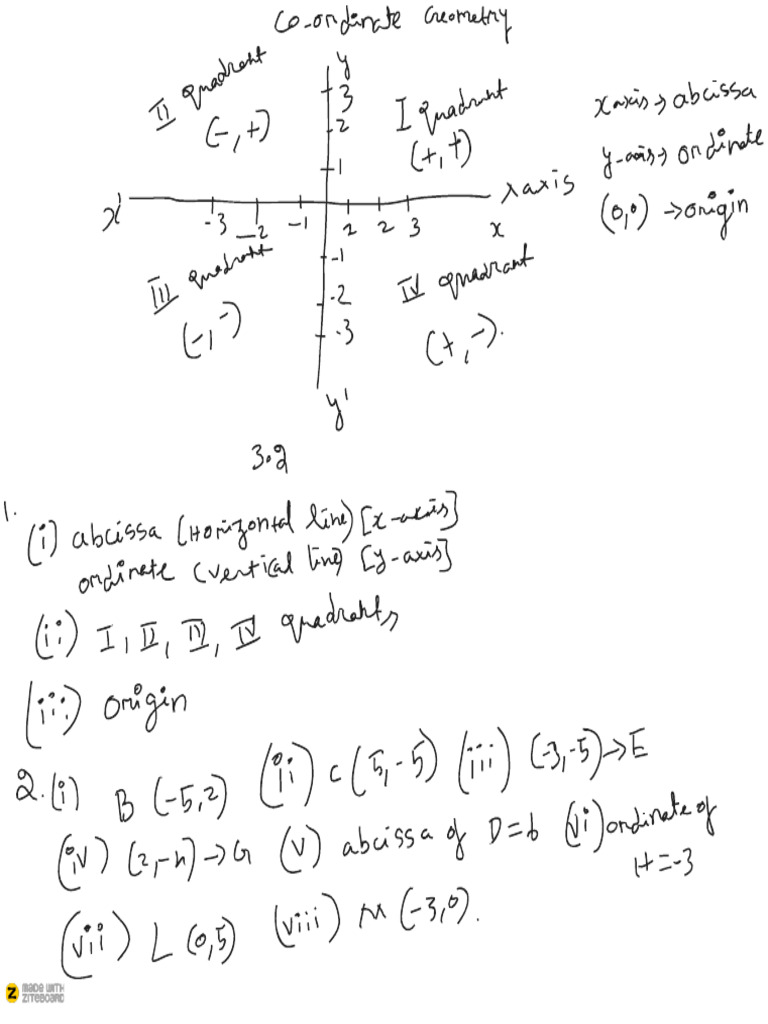 Co-ordinate Geometry
II quadrant
(-,+)
y
3
2
1
I quadrant
(+,+)
x axis → abcissa
y-axis → ordinate
(0,0) → origin
x'
x axis
-3 -2 -1 1 2 3
x
III quadrant
(-,-)
-1
-2
-3
IV quadrant
(+,-).
y'
3.2
1.
(i) abcissa (Horizontal line) [x-axis]
ordinate (vertical line) [y-axis]
(ii) I, II, III, IV quadrants
(iii) origin
2.(i) B (-5,2) (ii) C (5,-5) (iii) (-3,-5) → E
(iv) (2,-4) → G (v) abcissa of D = 6 (vi) ordinate of
H = -3
(vii) L (0,5) (viii) M (-3,0).
Z MADE WITH
ZITEBOARD